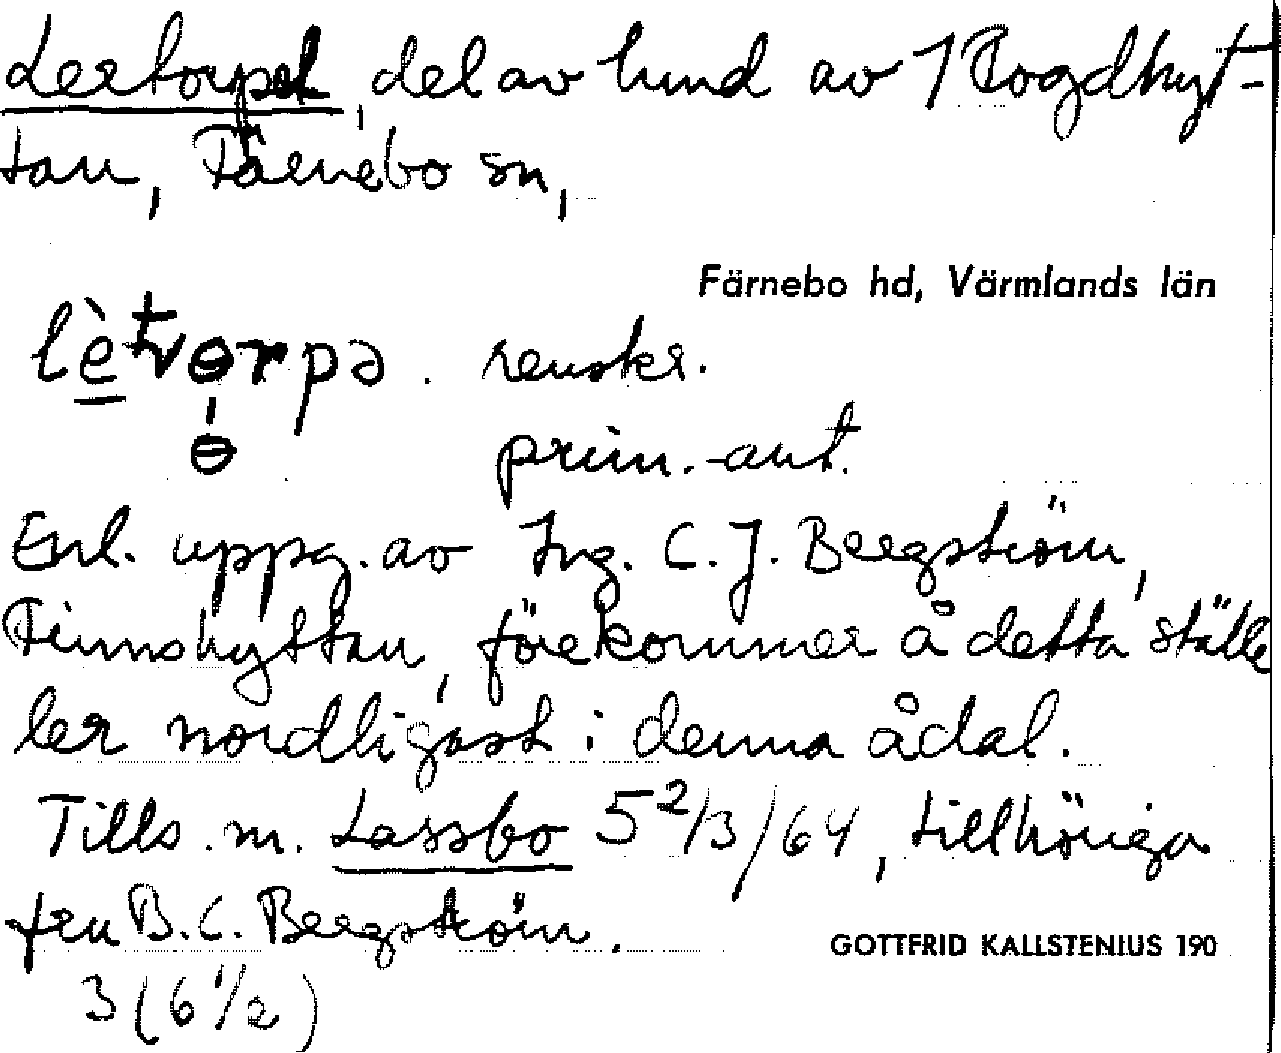 Lertorpet, del av hmd av 1 Rogdhyt-
tan, Färnebo sn,
Färnebo hd, Värmlands län
lètvɵrpə. renskr.
ɵ prim.-ant.
Enl. uppg. av Ing. C. J. Bergström,
Finnshyttan, förekommer å detta ställe
ler nordligast i denna ådal.
Tills. m. Lassbo 5 2/3/64, tillhöriga
fru B. C. Bergström.
GOTTFRID KALLSTENIUS 190
3 (6 1/2)